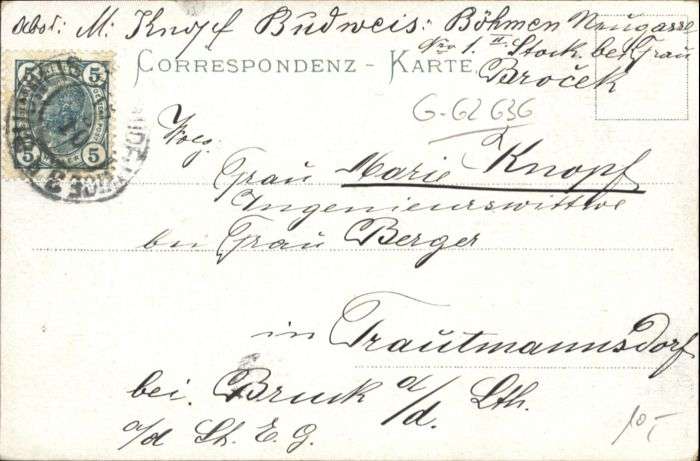 Absd: M: Knopf Budweis: Böhmen Neugasse
Nro 1. II. Stock. bei Frau
Broček
CORRESPONDENZ - KARTE
5 5
5 5
G-62636
Wolg.
Frau Marie Knopf
Ingenieurswittwe
bei Frau Berger
in Trautmannsdorf
bei Bruck a/d. Lth.
a/d St. E. G.
10,-